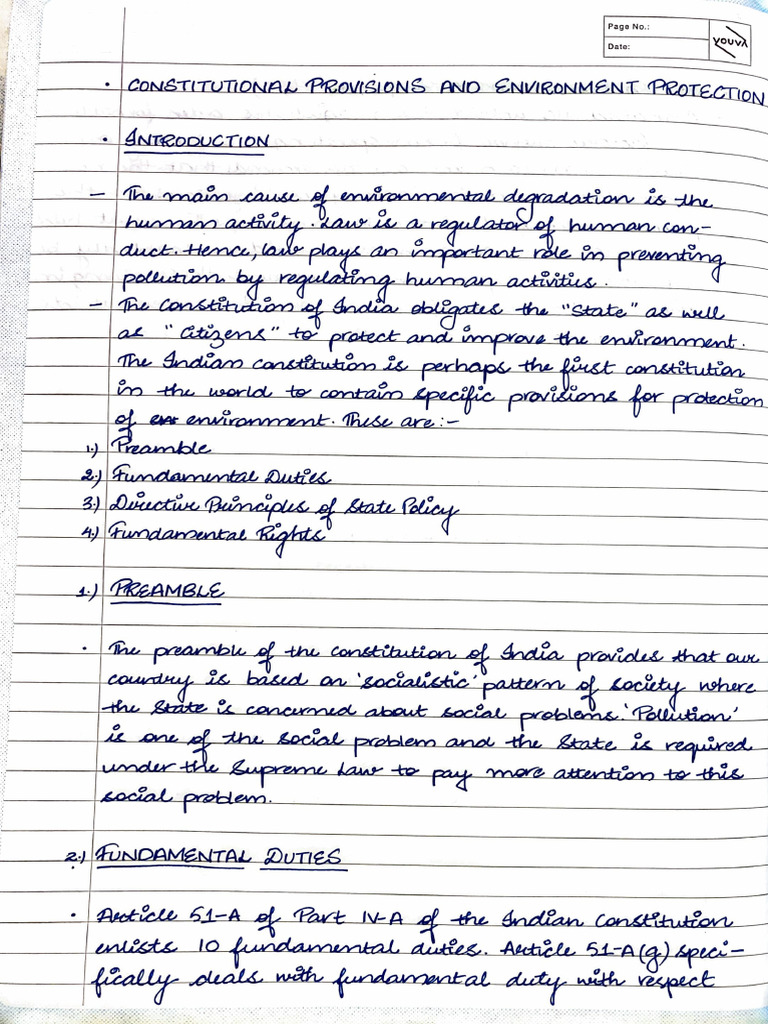 Page No.:
Date:
YOUVA
• CONSTITUTIONAL PROVISIONS AND ENVIRONMENT PROTECTION
• INTRODUCTION
– The main cause of environmental degradation is the
human activity. Law is a regulator of human con-
duct. Hence, law plays an important role in preventing
pollution by regulating human activities.
– The constitution of India obligates the "State" as well
as "Citizens" to protect and improve the environment.
The Indian constitution is perhaps the first constitution
in the world to contain specific provisions for protection
of environment. These are:-
1.) Preamble
2.) Fundamental Duties
3.) Directive Principles of State Policy
4.) Fundamental Rights
1.) PREAMBLE
• The preamble of the constitution of India provides that our
country is based on 'socialistic' pattern of society where
the State is concerned about social problems. 'Pollution'
is one of the social problem and the State is required
under the Supreme Law to pay more attention to this
social problem.
2.) FUNDAMENTAL DUTIES
• Article 51-A of Part IV-A of the Indian Constitution
enlists 10 fundamental duties. Article 51-A(g) speci-
fically deals with fundamental duty with respect